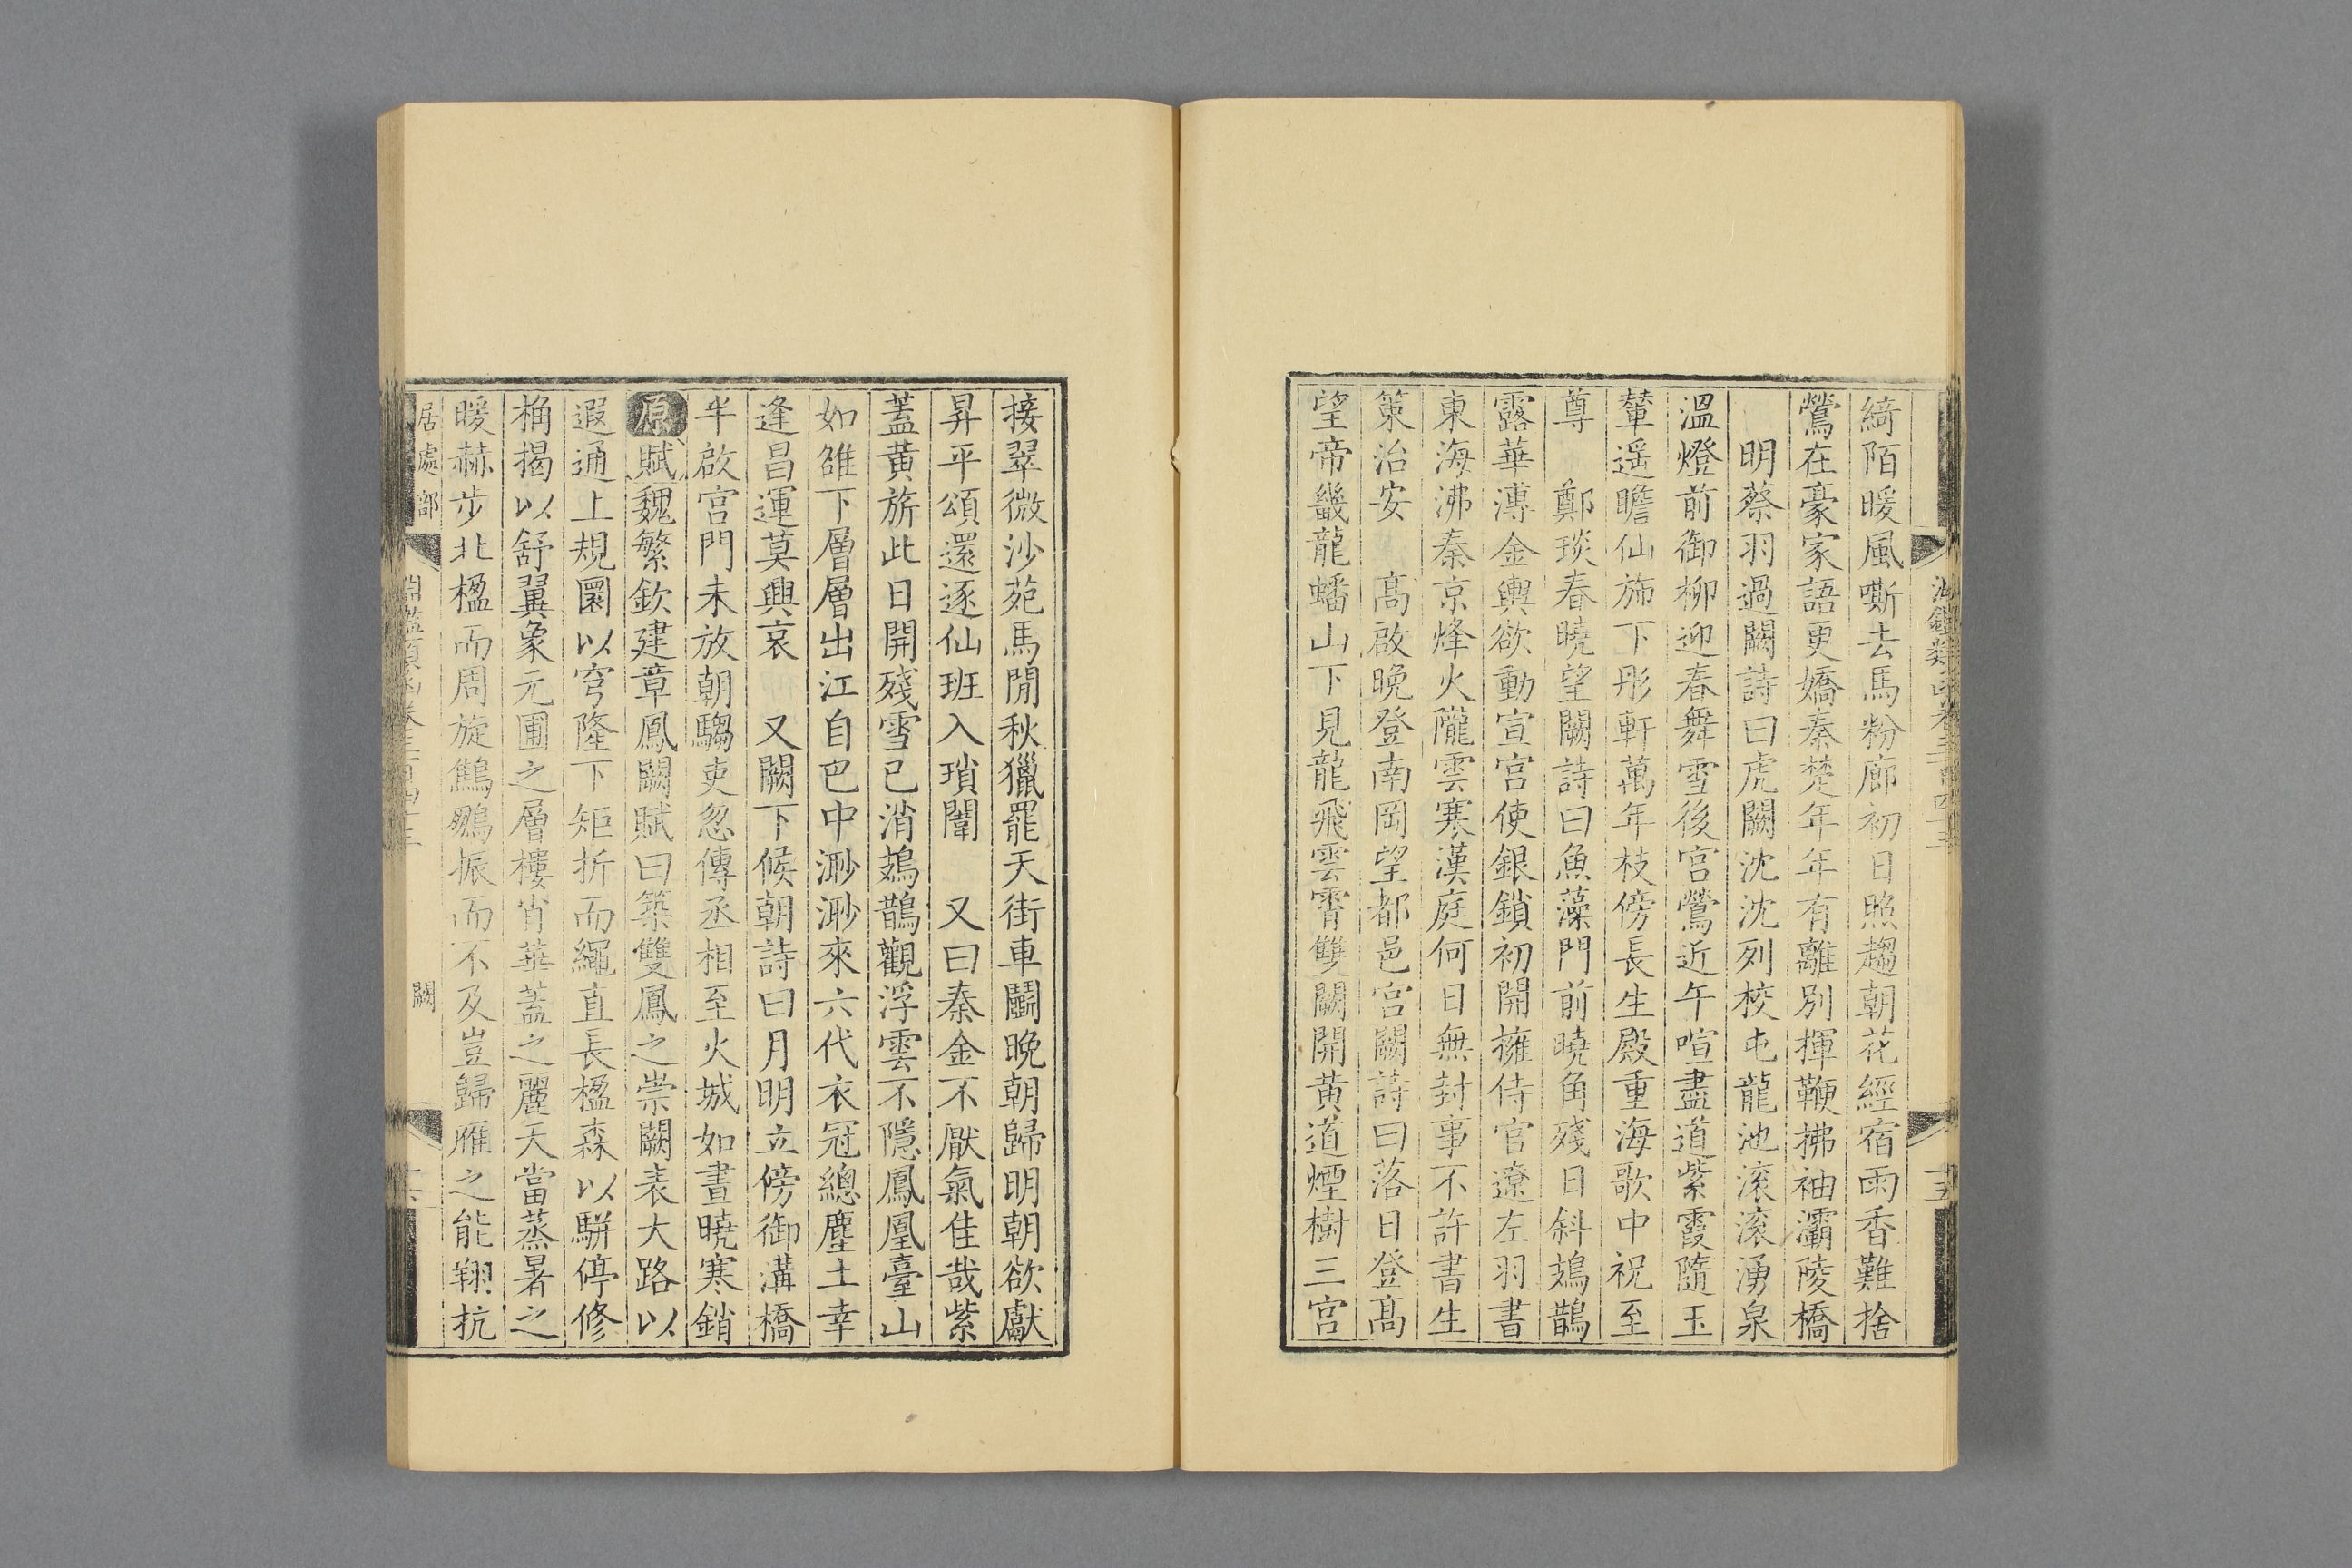 綺陌暖風嘶去馬粉廊初日照趨朝花經宿雨香難捨
鶯在豪家語更嬌秦楚年年有離別揮鞭拂袖灞陵橋
明蔡羽過闕詩曰虎闕沈沈列校屯龍池滚滚湧泉
溫燈前御柳迎春舞雪後宮鶯近午喧盡道紫霞隨玉
輦遥瞻仙斾下彤軒萬年枝傍長生殿重海歌中祝至
尊　鄭琰春曉望闕詩曰魚藻門前曉角殘日斜鳷鵲
露華漙金輿欲動宣宮使銀鎖初開擁侍官遼左羽書
東海沸秦京烽火隴雲寒漢庭何日無封事不許書生
策治安　高啟晚登南岡望都邑宮闕詩曰落日登高
望帝畿龍蟠山下見龍飛雲霄雙闕開黄道煙樹三宮
接翠微沙苑馬閒秋獵罷天街車鬬晚朝歸明朝欲獻
昇平頌還逐仙班入瑣闈　又曰秦金不厭氣佳哉紫
蓋黄旂此日開殘雪已消鳷鵲觀浮雲不隱鳳凰臺山
如雒下層層出江自巴中渺渺來六代衣冠總塵土幸
逢昌運莫興哀　又闕下候朝詩曰月明立傍御溝橋
半啟宮門未放朝騶吏忽傳丞相至火城如晝曉寒銷
原賦魏繁欽建章鳳闕賦曰築雙鳳之崇闕表大路以
遐通上規圜以穹隆下矩折而繩直長楹森以駢停修
桷揭以舒翼象元圃之層樓肖華蓋之麗天當蒸暑之
暖赫步北楹而周旋鷦鵬振而不及豈歸雁之能翔抗
居處部
闕